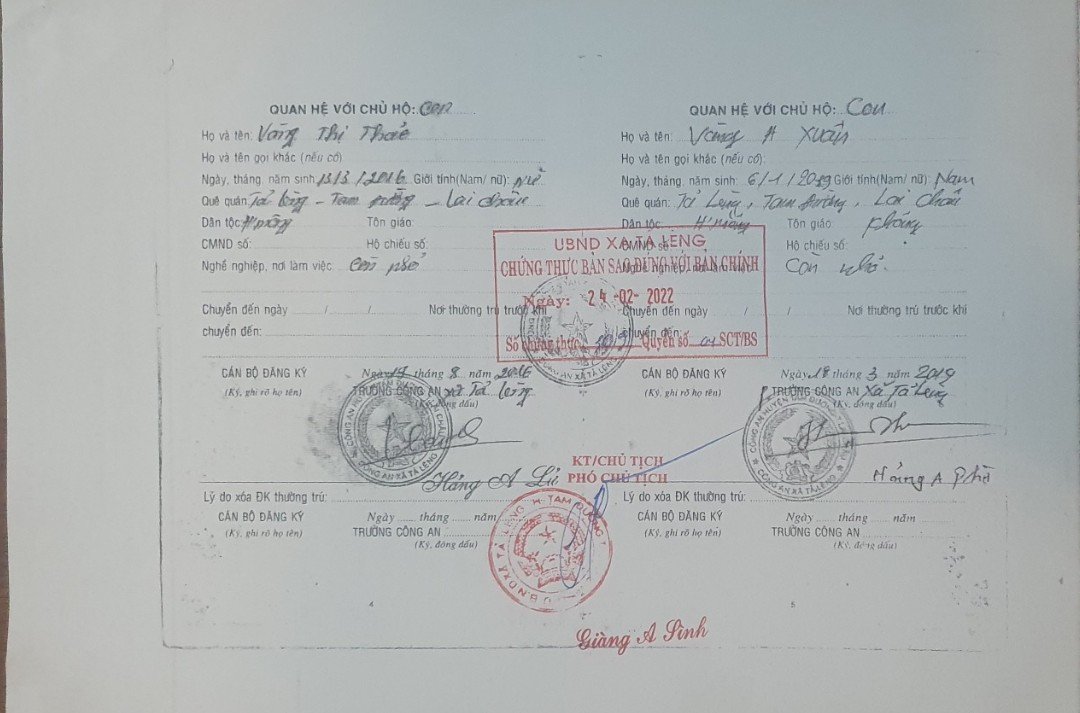 QUAN HỆ VỚI CHỦ HỘ: con
Họ và tên: Vàng Thị
Họ và tên gọi khác (nếu có)
Ngày, tháng, năm sinh 13/3/2016 Giới tính(Nam/ nữ): nữ
Quê quán Tả Lèng - Tam Đường - Lai Châu
Dân tộc: H'mông Tôn giáo:
CMND số: Hộ chiếu số:
Nghề nghiệp, nơi làm việc: Còn nhỏ
Chuyển đến ngày / / Nơi thường trú trước khi
chuyển đến:
CÁN BỘ ĐĂNG KÝ Ngày 17 tháng 8 năm 2016
(Ký, ghi rõ họ tên) TRƯỞNG CÔNG AN xã Tả Lèng
(Ký, đóng dấu)
CÔNG AN XÃ TẢ LÈNG
Hảng A Lù
Lý do xóa ĐK thường trú:
CÁN BỘ ĐĂNG KÝ Ngày ...... tháng ...... năm
(Ký, ghi rõ họ tên) TRƯỞNG CÔNG AN
(Ký, đóng dấu)
4
QUAN HỆ VỚI CHỦ HỘ: Con
Họ và tên: Vàng A Xuân
Họ và tên gọi khác (nếu có):
Ngày, tháng, năm sinh: 6/1/2019 Giới tính(Nam/ nữ): Nam
Quê quán: Tả Lèng, Tam Đường, Lai Châu
Dân tộc: H'mông Tôn giáo: Không
CMND số: Hộ chiếu số:
Nghề nghiệp, nơi làm việc: Còn nhỏ.
Chuyển đến ngày / / Nơi thường trú trước khi
chuyển đến:
CÁN BỘ ĐĂNG KÝ Ngày 18 tháng 3 năm 2019
(Ký, ghi rõ họ tên) TRƯỞNG CÔNG AN Xã Tả Lèng
(Ký, đóng dấu)
CÔNG AN XÃ TẢ LÈNG
Lý do xóa ĐK thường trú:
CÁN BỘ ĐĂNG KÝ Ngày ...... tháng ...... năm
(Ký, ghi rõ họ tên) TRƯỞNG CÔNG AN
(Ký, đóng dấu)
5
UBND XÃ TẢ LÈNG
CHỨNG THỰC BẢN SAO ĐÚNG VỚI BẢN CHÍNH
Ngày: 24-02-2022
Số chứng thực Quyển số 01 SCT/BS
KT/CHỦ TỊCH
PHÓ CHỦ TỊCH
Giàng A Sình